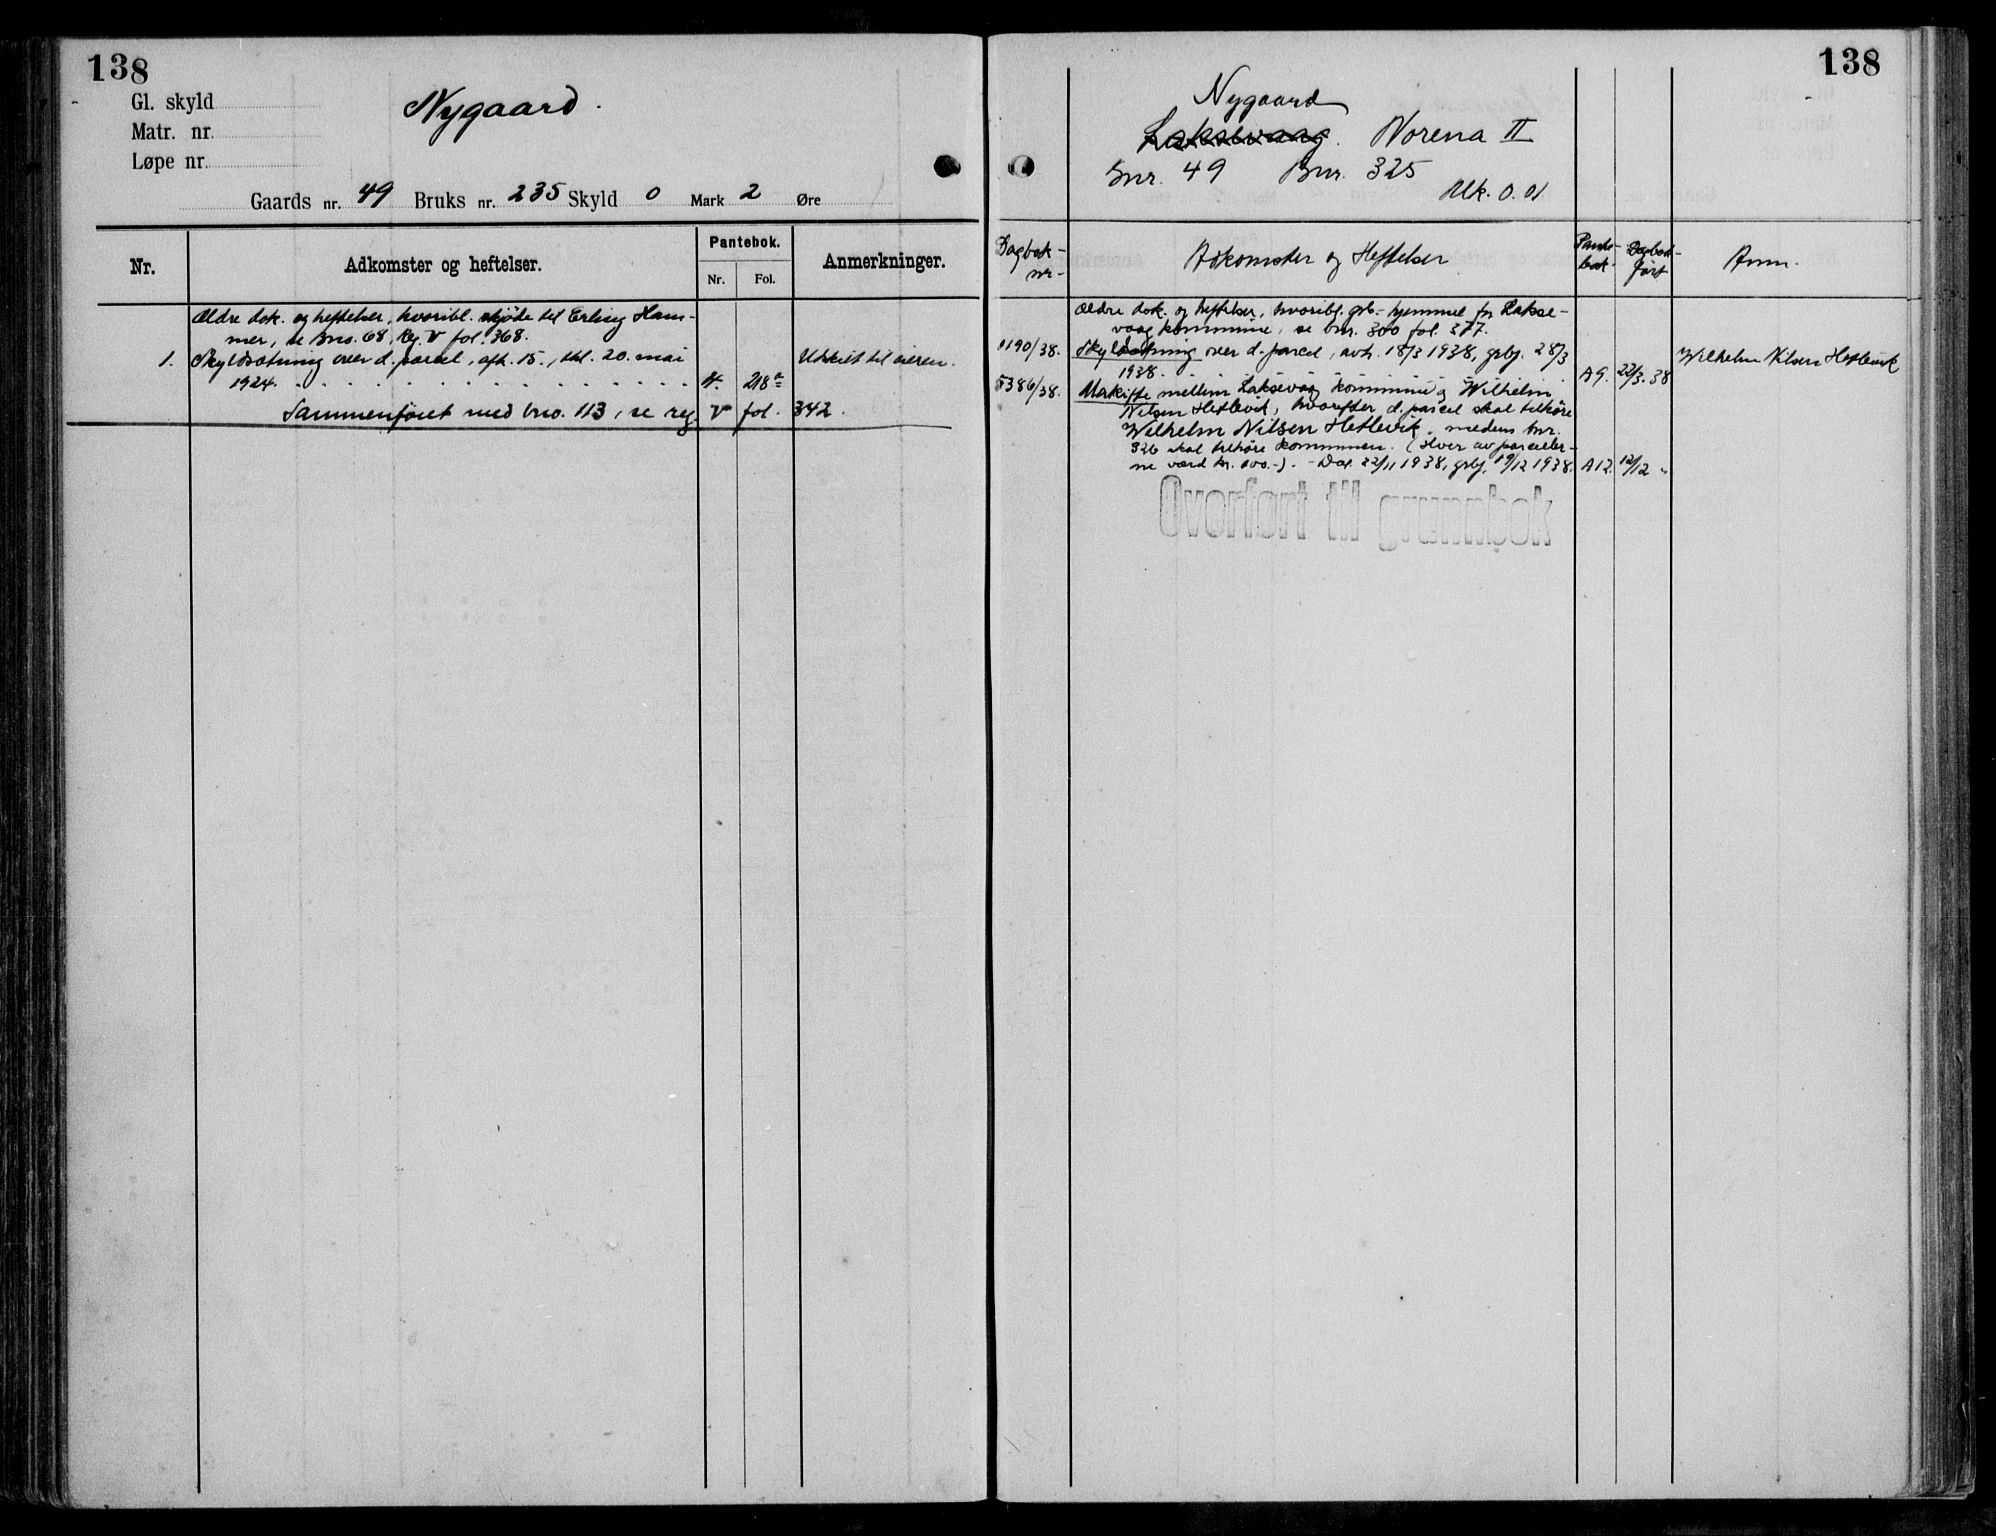 138
Gl. skyld
Matr. nr.
Løpe nr.
Nygaard.
Gaards nr. 49 Bruks nr. 235 Skyld 0 Mark 2 Øre
Nr. Adkomster og heftelser. Pantebok. Anmerkninger.
Nr. Fol.
Ældre dok. og heftelser, hvoribl. skjøde til Erling Ham-
mer, se Bno. 68, Reg. V fol. 368.
1. Skyldsætning over d. parcel, afh. 15., thl. 20. mai Utskilt til eieren.
1924. 4. 218a
Sammenføiet med bno. 113, se reg V fol. 342.
138
Nygaard
Laksevaag. Norena II
Gnr. 49 Bnr. 325
Mk. 0.01
Dagbok- nr- Adkomster og Heftelser Pante- bok. Dagbok- ført Anm.
Ældre dok. og heftelser, hvoribl. grb.-hjemmel for Lakse-
vaag kommune, se bnr. 300 fol. 377.
1190/38. Skyldsetning over d. parcel, avh. 18/3 1938, grbj. 28/3 Wilhelm Nilsen Hetlevik
1938. A9. 22/3.38
5386/38. Makeskifte mellem Laksevaag kommune og Wilhelm
Nilsen Hetlevik, hvorefter d. parcel skal tilhøre
Wilhelm Nilsen Hetlevik, medens bnr.
326 skal tilhøre kommunen. (Hver av parceller-
ne værd kr. 100.-). - Dat. 22/11 1938, grbj. 19/12 1938. A12. 12/12 "
Overført til grunnbok